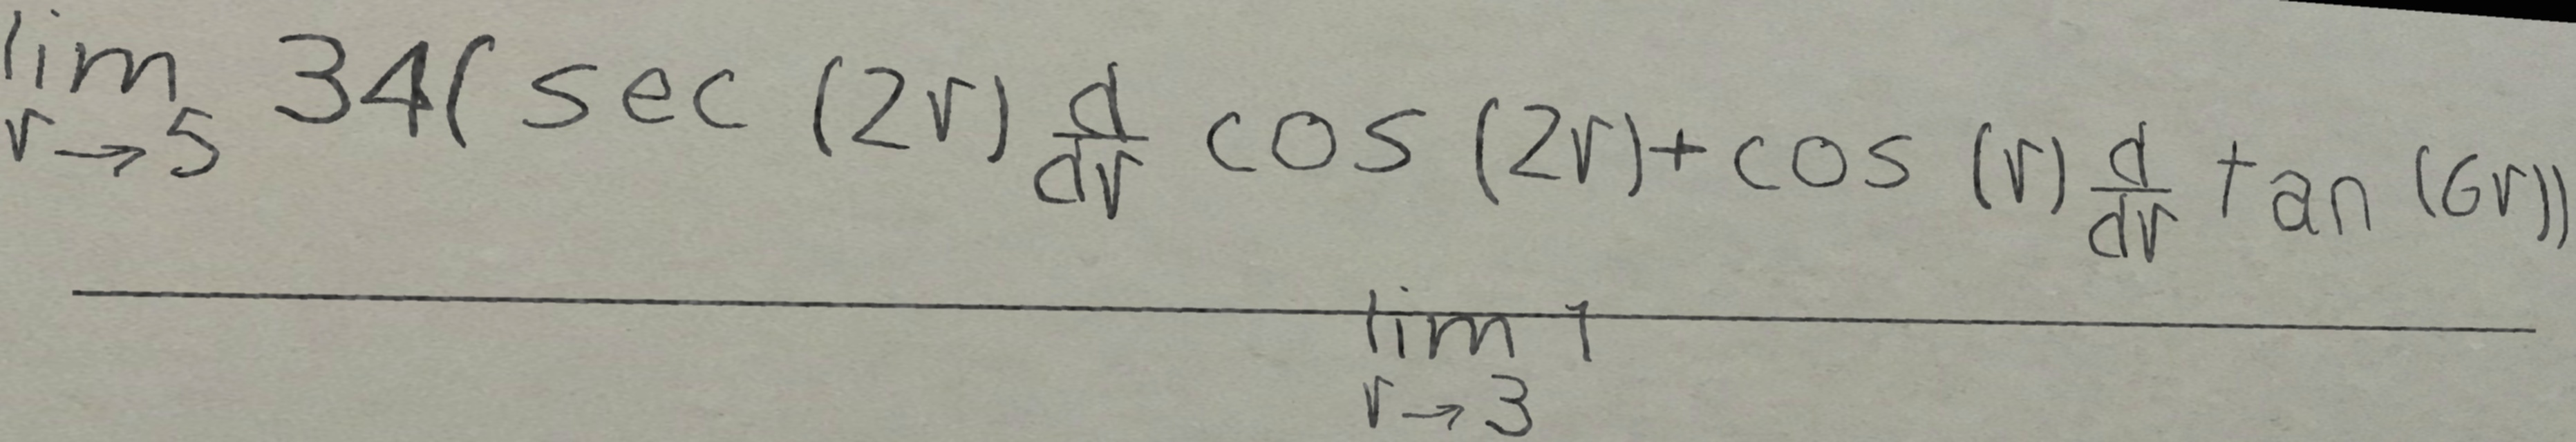 lim r→5 34(sec (2r) d/dr cos (2r)+cos (r) d/dr tan (6r))
lim r→3 1